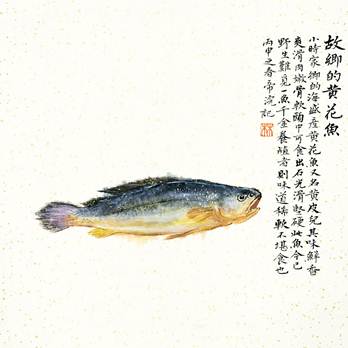 故鄉的黄花魚
小時家鄉的海盛産黄花魚又名黄皮兒其味鮮香
爽滑肉嫩骨軟腦中可食出石光滑堅硬此魚令已
野生難覓一魚千金養殖者則味道稀軟不堪食也
丙申之春帝浣記